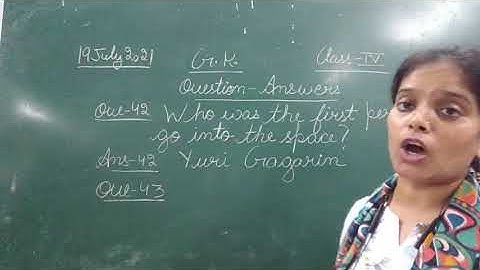 19 July 2021 G.K. Class-IV
Question-Answers
Que-42 Who was the first per
go into the space?
Ans-42 Yuri Gagarin
Que-43